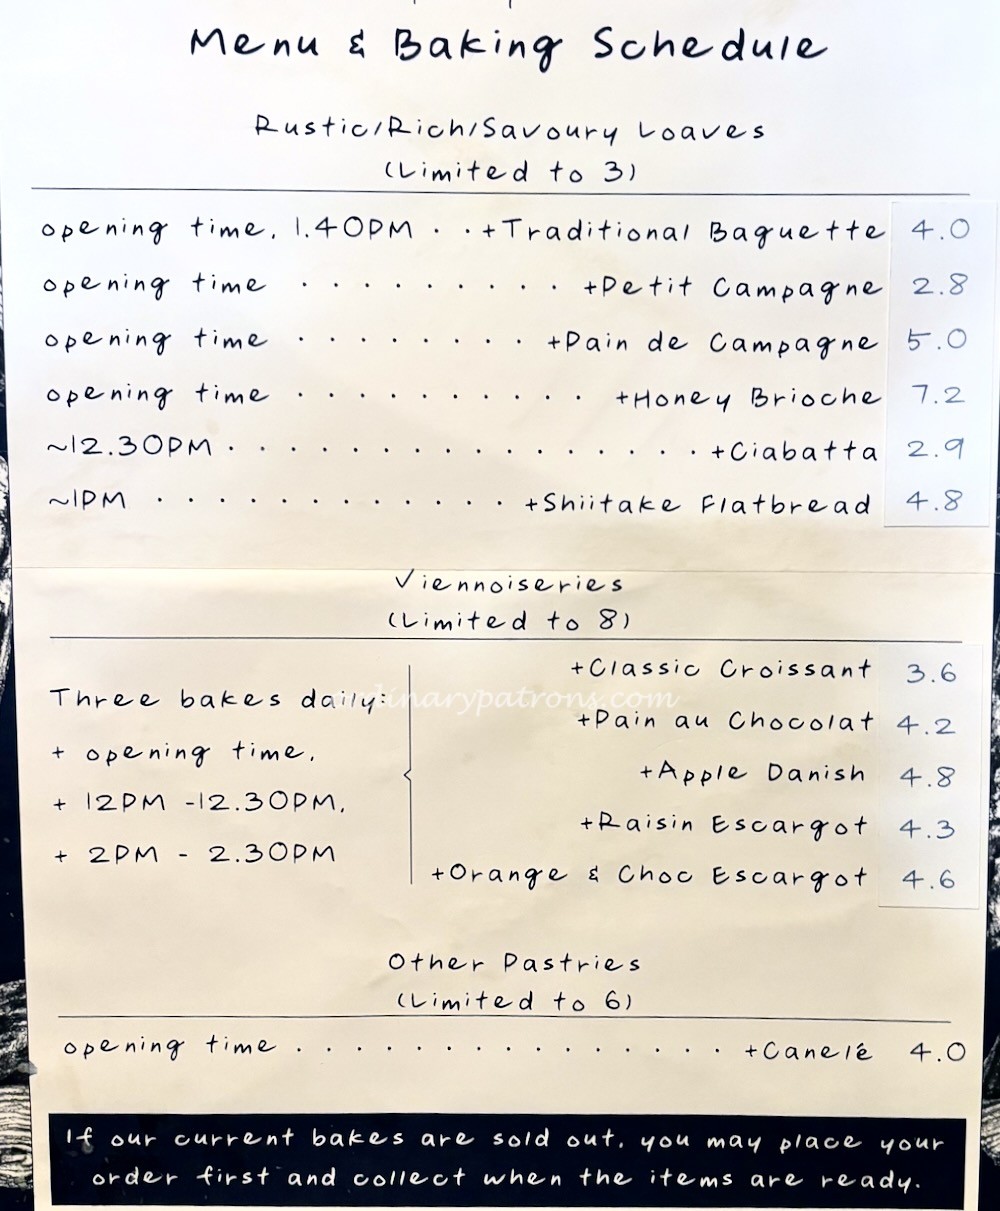 Menu & Baking Schedule
Rustic/Rich/Savoury Loaves
(Limited to 3)
opening time, 1.40PM . . +Traditional Baguette 4.0
opening time . . . . . . . . . . +Petit Campagne 2.8
opening time . . . . . . . . +Pain de Campagne 5.0
opening time . . . . . . . . . . . +Honey Brioche 7.2
~12.30PM . . . . . . . . . . . . . . . . . +Ciabatta 2.9
~1PM . . . . . . . . . . . . +Shiitake Flatbread 4.8
Viennoiseries
(Limited to 8)
Three bakes daily:
+ opening time,
+ 12PM -12.30PM,
+ 2PM - 2.30PM
+Classic Croissant 3.6
ordinarypatrons.com
+Pain au Chocolat 4.2
+Apple Danish 4.8
+Raisin Escargot 4.3
+Orange & Choc Escargot 4.6
Other Pastries
(Limited to 6)
opening time . . . . . . . . . . . . . . . . +Canelé 4.0
If our current bakes are sold out, you may place your
order first and collect when the items are ready.